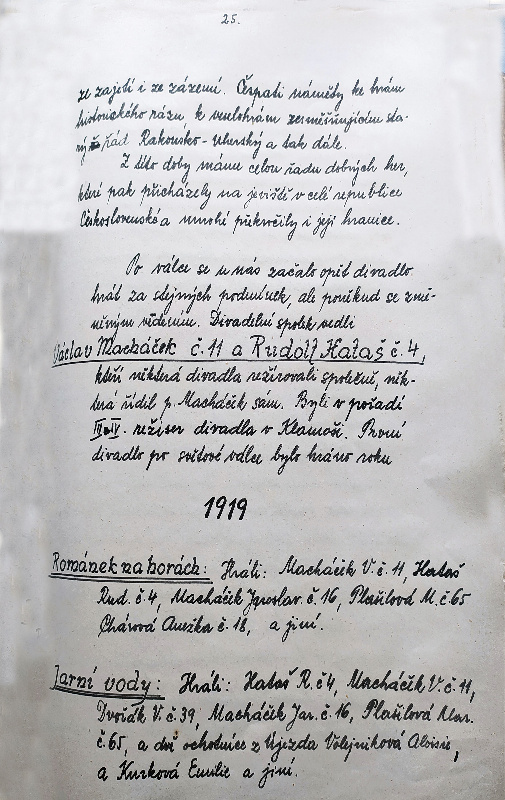 25.
ze zajetí i ze zázemí. Čerpati náměty ke hrám
historického rázu, k veselohrám zesměšňujícím sta-
rý řád Rakousko-Uherský a tak dále.
Z této doby máme celou řadu dobrých her,
které pak přicházely na jeviště v celé republice
Československé a mnohé překročily i její hranice.
Po válce se u nás začalo opět divadlo
hrát za stejných podmínek, ale poněkud se změ-
něným vedením. Divadelní spolek vedli
Václav Macháček č. 11 a Rudolf Hataš č. 4,
kteří některá divadla režírovali společně, něk-
terá řídil p. Macháček sám. Byli v pořadí
III. a IV. režiser divadla v Klamoši. První
divadlo po světové válce bylo hráno roku
1919
Románek na horách: Hráli: Macháček V. č. 11, Hataš
Rud. č. 4, Macháček Jaroslav č. 16, Plašilová M. č. 65
Chárová Anežka č. 18, a jiní.
Jarní vody: Hráli: Hataš R. č 4, Macháček V. č. 11,
Dvořák V. č. 39, Macháček Jar. č. 16, Plašilová Mar.
č. 65, a dvě ochotnice z Újezda Volejníková Aloisie,
a Kurková Emilie a jiní.